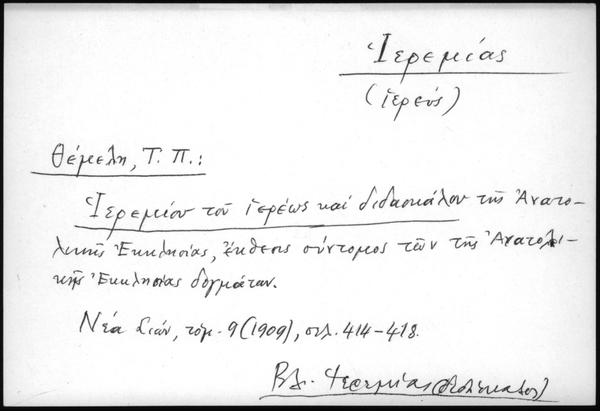 Ἱερεμίας
(ἱερεύς)
Θέμελη, Τ. Π.:
Ἱερεμίου τοῦ ἱερέως καὶ διδασκάλου τῆς Ἀνατο-
λικῆς Ἐκκλησίας, ἔκθεσις σύντομος τῶν τῆς Ἀνατολι-
κῆς Ἐκκλησίας δογμάτων.
Νέα Σιών, τόμ. 9 (1909), σελ. 414-418.
Βλ. Ἱερεμίας (διδάσκαλος)